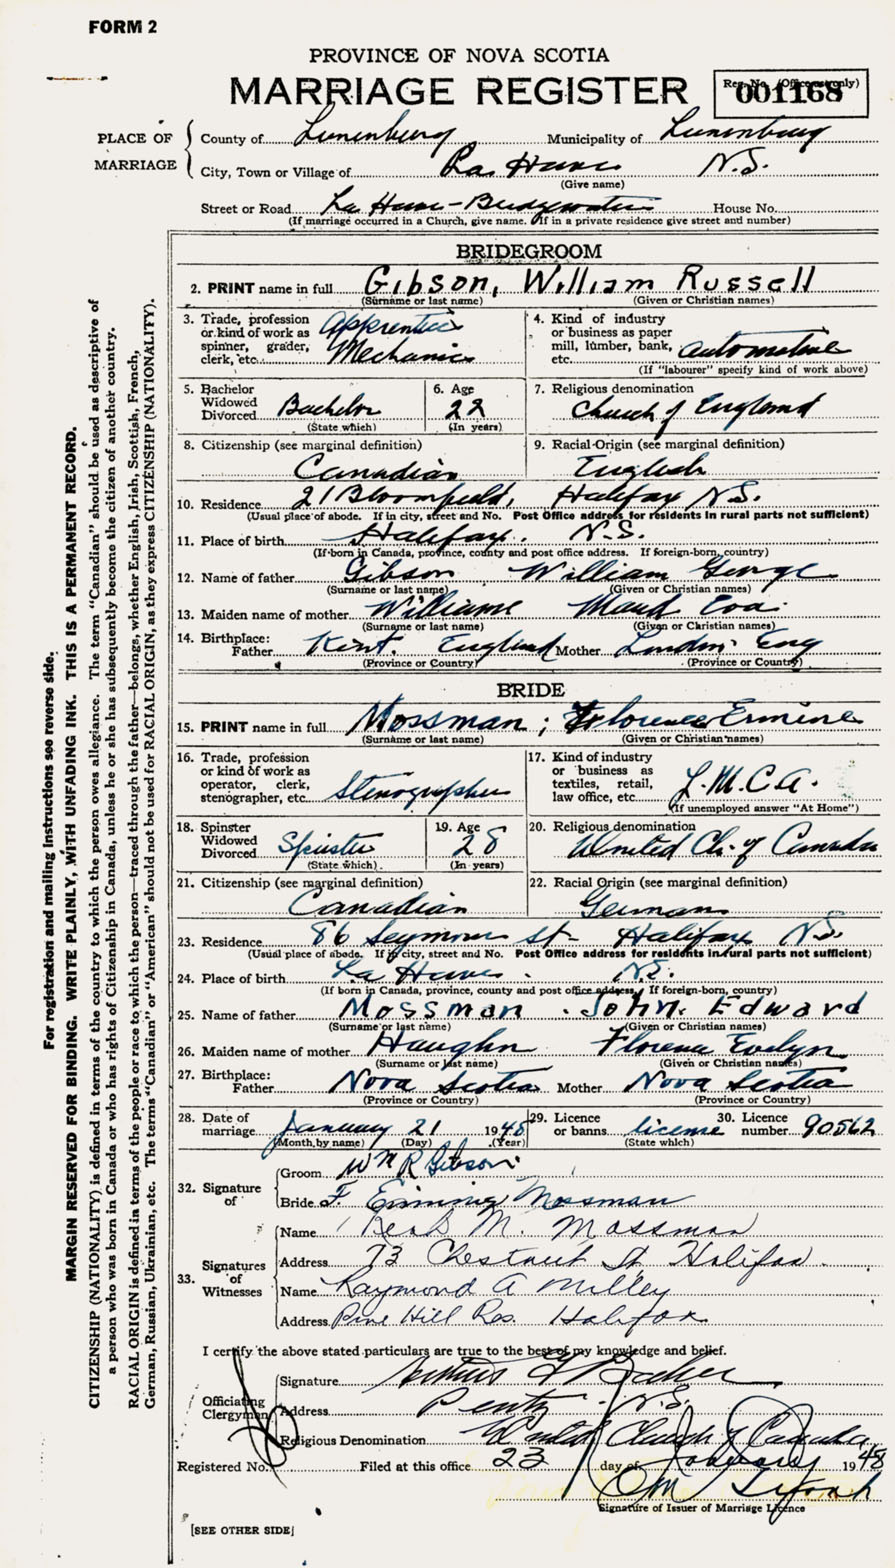 FORM 2
PROVINCE OF NOVA SCOTIA
MARRIAGE REGISTER
Reg. No. (Office use only)
001168
PLACE OF MARRIAGE
County of Lunenburg Municipality of Lunenburg
City, Town or Village of La Have N.S.
(Give name)
Street or Road La Have-Bridgewater House No.
(If marriage occurred in a Church, give name. If in a private residence give street and number)
BRIDEGROOM
2. PRINT name in full Gibson, William Russell
(Surname or last name) (Given or Christian names)
3. Trade, profession or kind of work as spinner, grader, clerk, etc. Apprentice Mechanic
4. Kind of industry or business as paper mill, lumber, bank, etc. automotive
(If "labourer" specify kind of work above)
5. Bachelor Widowed Divorced Bachelor
(State which)
6. Age 22
(In years)
7. Religious denomination Church of England
8. Citizenship (see marginal definition) Canadian
9. Racial Origin (see marginal definition) English
10. Residence 21 Bloomfield, Halifax N.S.
(Usual place of abode. If in city, street and No. Post Office address for residents in rural parts not sufficient)
11. Place of birth Halifax. N.S.
(If born in Canada, province, county and post office address. If foreign-born, country)
12. Name of father Gibson William George
(Surname or last name) (Given or Christian names)
13. Maiden name of mother Williams Maud Eva
(Surname or last name) (Given or Christian names)
14. Birthplace:
Father Kent. England Mother London Eng
(Province or Country) (Province or Country)
BRIDE
15. PRINT name in full Mossman; Florence Ermine
(Surname or last name) (Given or Christian names)
16. Trade, profession or kind of work as operator, clerk, stenographer, etc. Stenographer
17. Kind of industry or business as textiles, retail, law office, etc.
(If unemployed answer "At Home")
18. Spinster Widowed Divorced Spinster
(State which)
19. Age 28
(In years)
20. Religious denomination United Ch. of Canada
21. Citizenship (see marginal definition) Canadian
22. Racial Origin (see marginal definition) German
23. Residence 86 Seymour St- Halifax N.S.
(Usual place of abode. If in city, street and No. Post Office address for residents in rural parts not sufficient)
24. Place of birth La Have. N.S.
(If born in Canada, province, county and post office address. If foreign-born, country)
25. Name of father Mossman. John Edward
(Surname or last name) (Given or Christian names)
26. Maiden name of mother Haughn Florence Evelyn
(Surname or last name) (Given or Christian names)
27. Birthplace:
Father Nova Scotia Mother Nova Scotia
(Province or Country) (Province or Country)
28. Date of marriage January 21 1948
(Month by name) (Day) (Year)
29. Licence or banns license
(State which)
30. Licence number 90562
32. Signature of
Groom Wm R Gibson
Bride F. Ermine Mossman
33. Signatures of Witnesses
Name M. Mossman
Address 73 Chestnut St Halifax.
Name Raymond A Milley
Address Pine Hill Res. Halifax
I certify the above stated particulars are true to the best of my knowledge and belief.
Officiating Clergyman
Signature
Address N.S.
Religious Denomination United Church of Canada
Registered No. Filed at this office 23 day of January 1948
Signature of Issuer of Marriage Licence
[SEE OTHER SIDE]
For registration and mailing instructions see reverse side.
MARGIN RESERVED FOR BINDING. WRITE PLAINLY, WITH UNFADING INK. THIS IS A PERMANENT RECORD.
CITIZENSHIP (NATIONALITY) is defined in terms of the country to which the person owes allegiance. The term "Canadian" should be used as descriptive of
a person who was born in Canada or who has rights of Citizenship in Canada, unless he or she has subsequently become the citizen of another country.
RACIAL ORIGIN is defined in terms of the people or race to which the person—traced through the father—belongs, whether English, Irish, Scottish, French,
German, Russian, Ukrainian, etc. The terms "Canadian" or "American" should not be used for RACIAL ORIGIN, as they express CITIZENSHIP (NATIONALITY).